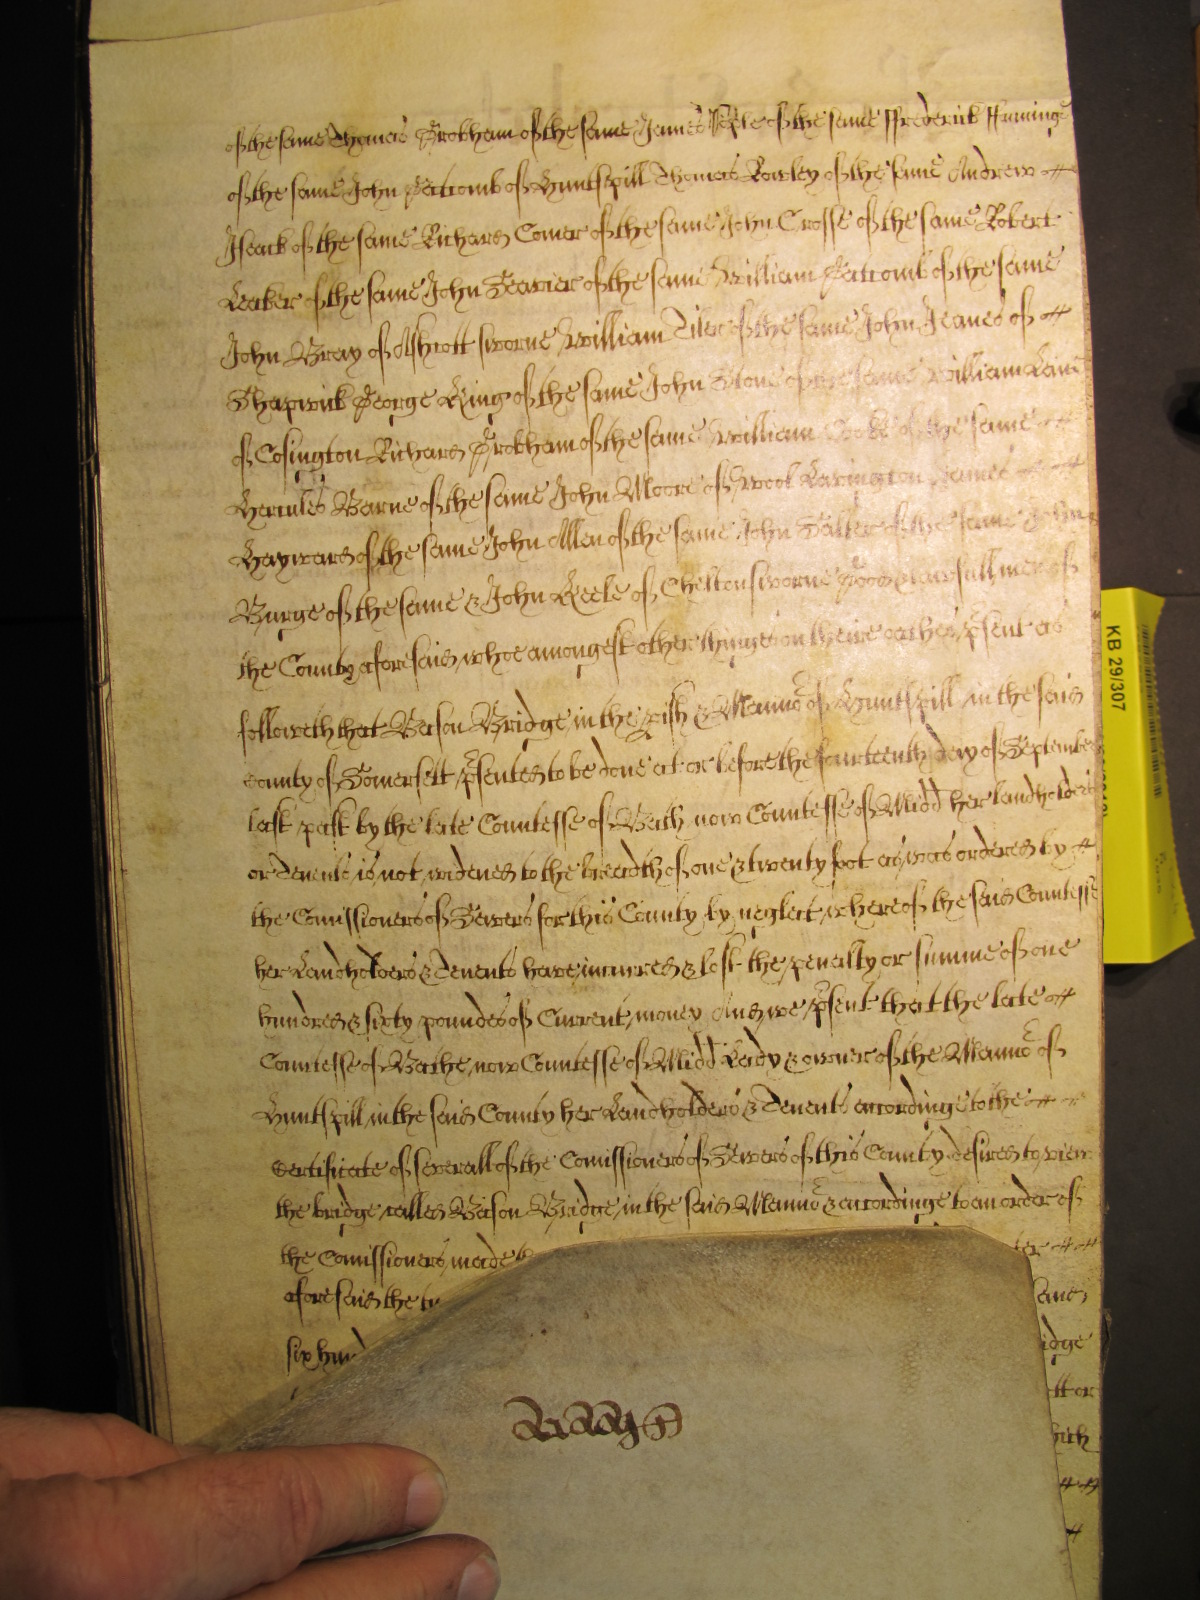 of the same Thomas Brobham of the same James Sele of the same ffrederick
of the same John Patcomb of Huntspill Thomas Rowley of the same Andrew
Iseack of the same Richard Comer of the same John Crosse of the same Robert
Leaker of the same John Seavier of the same William Patcomb of the same
John Bray of Ashcott sworne William Tiler of the same John Jeanes of
Shapwick George King of the same John Stone of the same William
of Cosington Richard Brobham of the same William Cooke of the same
Hercules Barne of the same John Moore of Wool Lavington James
Hayward of the same John Allen of the same John Salter of the same John
Burge of the same & John Keele of Chelton sworne good & lawfull men of
the County aforesaid whoe amongest other things on theire oathes psent as
followeth that Bason Bridge in the pish & Manno of Huntspill in the said
County of Somersett psented to be done at or before the fourteenth day of September
last past by the late Countesse of Bath now Countesse of Midd her landholders
or Tenents is not widened to the breadth of one & twenty foot as was ordered by
the Comissioners of Sewers for this County by neglect whereof the said Countesse
her Landholders & Tenents have incurred & lost the penalty or summe of one
hundred & sixty poundes of Current money And we psent that the late
Countesse of Bathe now Countesse of Midd Lady & owner of the Manno of
Huntspill in the said County her Landholders & Tenents accordinge to the
Certificate of severall of the Comissioners of Sewers of this County desired to view
the bridge called Bason Bridge in the said Manno & accordinge to an order of
the Comissioners made
aforesaid the
six hund
idge
KB 29/307